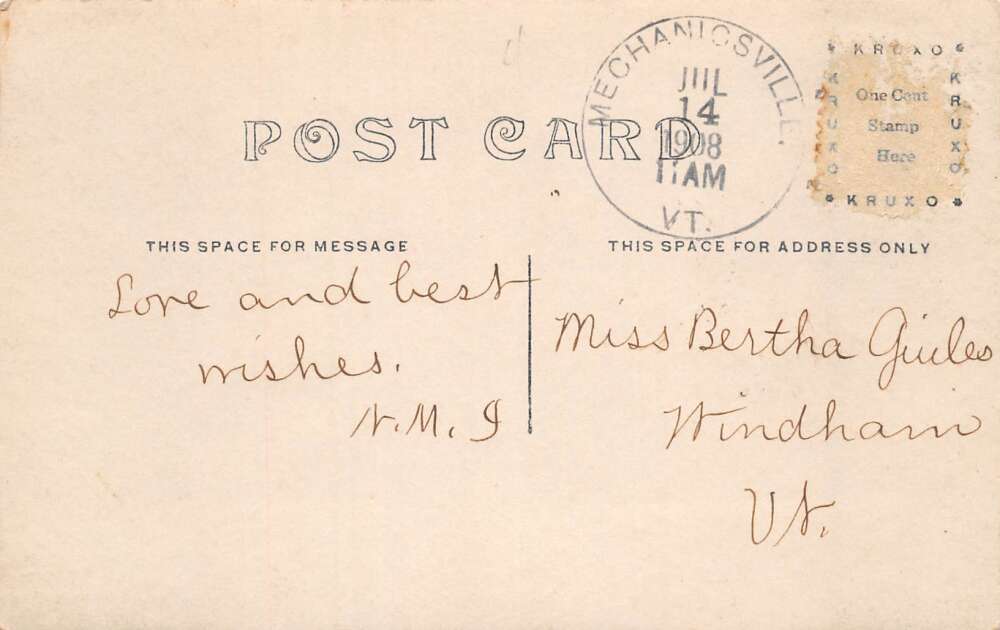 POST CARD
MECHANICSVILLE.
JUL
14
1908
11 AM
VT.
* KRUXO *
KRUXO
KRUXO
One Cent
Stamp
Here
* KRUXO *
THIS SPACE FOR MESSAGE
THIS SPACE FOR ADDRESS ONLY
Love and best
wishes.
N.M.I
Miss Bertha Guiles
Windham
Vt.